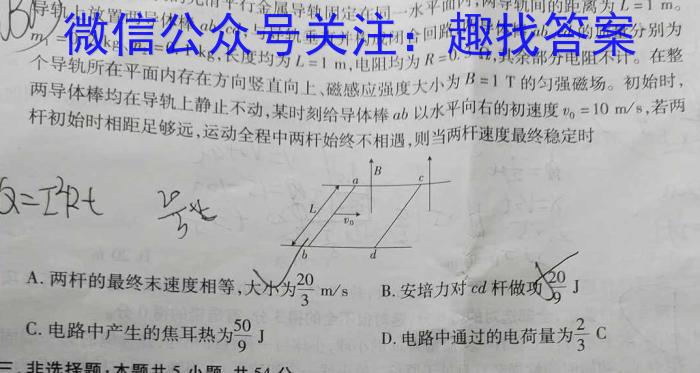 导轨上放置两导体棒
微信公众号关注：趣找答案
长度均为L=1 m,电阻均为R=0.
个导轨所在平面内存在方向竖直向上、磁感应强度大小为B=1 T的匀强磁场。初始时,
两导体棒均在导轨上静止不动,某时刻给导体棒ab以水平向右的初速度v₀=10 m/s,若两
杆初始时相距足够远,运动全程中两杆始终不相遇,则当两杆速度最终稳定时
a B c
Q=I²Rt
L v₀
b d
A. 两杆的最终末速度相等,大小为20/3 m/s
B. 安培力对cd杆做功20/9 J
C. 电路中产生的焦耳热为50/9 J
D. 电路中通过的电荷量为2/3 C
三、非选择题:本题共5小题,共54分